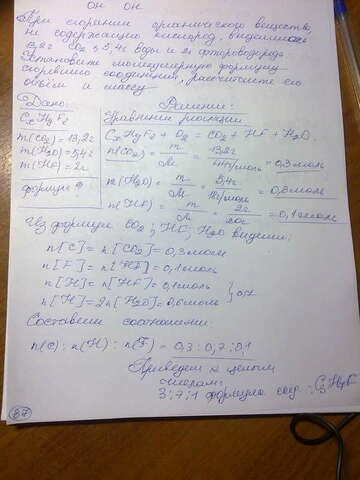 ОН ОН
При сгорении органического вещества,
не содержащего кислород, выделились
13,2г CO2, 5,4г воды и 2г фтороводорода.
Установите молекулярную формулу
сгоревшего соединения, рассчитайте его
объём и массу.
Дано: Решение:
CxHyFz Уравнение реакции:
m(CO2) = 13,2г CxHyFz + O2 = CO2 + HF + H2O.
m(H2O) = 5,4г n(CO2) = m/M = 13,2г/44г/моль = 0,3 моль
m(HF) = 2г n(H2O) = m/M = 5,4г/18г/моль = 0,3 моль
формула - ? n(HF) = m/M = 2г/20г = 0,1 моль
Из формул CO2; HF; H2O видим:
n[C] = n[CO2] = 0,3 моль
n[F] = n[HF] = 0,1 моль
n[H] = n[HF] = 0,1 моль
n[H] = 2n[H2O] = 0,6 моль } 0,7
Составим соотношение:
n(C) : n(H) : n(F) = 0,3 : 0,7 : 0,1
Приведем к целым
числам:
3:7:1 формула соед.: C3H7F
87